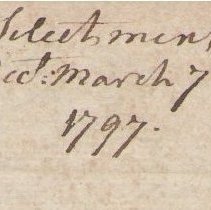 Selectsmen,
Recd: March 7
1797.